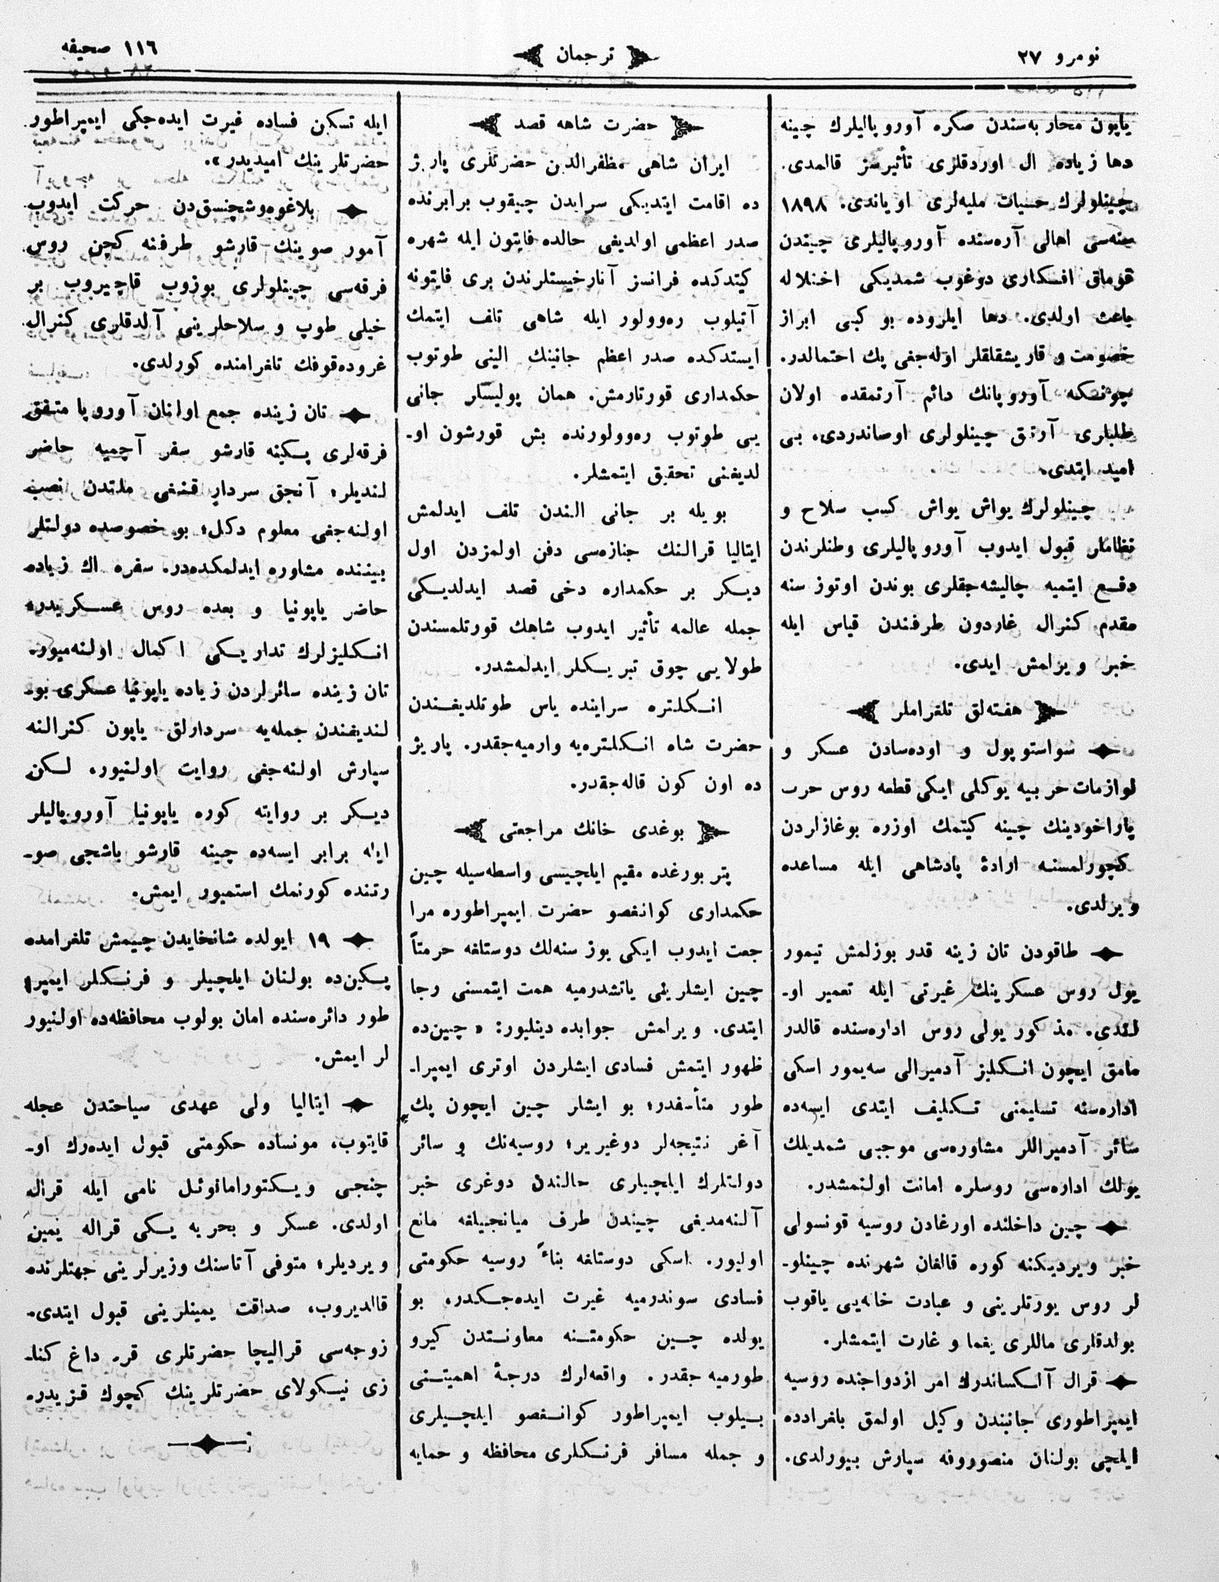 نومرو ٢٧
ترجمان
١١٦ صحيفه
ياپون محاربه‌سندن صكره آوروپاليلرك چينه
دها زياده ال اوردقلرى تأثيرسز قالمدى.
چينلولرك حسيات مليه‌لرى اوياندى. ١٨٩٨
سنه‌سى اهالى آره‌سنده آوروپاليلرى چيندن
قومق افكارى دوغوب شمديكى اختلاله
باعث اولدى. دها ايلروده بو كبى ابراز
خصومت و قاريشقلقلر اوله‌جغى پك احتمالدر.
چونكه آوروپانك دائم آرتمقده اولان
طلبلرى آرتق چينلولرى اوصاندردى، بى
اميد ايتدى.
چينلولرك يواش يواش كسب سلاح و
نظاملر قبول ايدوب آوروپاليلرى وطنلرندن
دفع ايتميه چاليشه‌جقلرى بوندن اوتوز سنه
مقدم كنرال غاردون طرفندن قياس ايله
خبر ويرلمش ايدى.
هفته‌لق تلغراملر
سواستوپول و اوده‌سادن عسكر و
لوازمات حربيه يوكلى ايكى قطعه روس حرب
پاراخودينك چينه كيتمك اوزره بوغازلردن
كچورلمسنه ارادۀ پادشاهى ايله مساعده
ويرلدى.
طاقودن تان زينه قدر بوزلمش تيمور
يول روس عسكرينك غيرتى ايله تعمير او-
لندى. مذكور يولى روس اداره‌سنده قالدر
مامق ايچون انكليز آدميرالى سه‌يمور اسكى
اداره‌سنه تسليمنى تكليف ايتدى ايسه‌ده
سائر آدميراللر مشاوره‌سى موجبى شمديلك
يولك اداره‌سى روسلره امانت اولنمشدر.
چين داخلنده اورغادن روسيه قونسولى
خبر ويرديكنه كوره قالغان شهرنده چينلو-
لر روس يورتلرينى و عبادت خانه‌يى ياقوب
بولدقلرى ماللرى يغما و غارت ايتمشلر.
قرال آلكساندرك امر ازدواجنده روسيه
ايمپراطورى جانبندن وكيل اولمق بلغرادده
ايلچى بولنان منصوروفه سپارش بيورلدى.
حضرت شاهه قصد
ايران شاهى مظفرالدين حضرتلرى پاريژ
ده اقامت ايتديكى سرايدن چيقوب برابرنده
صدر اعظمى اولديغى حالده فايتون ايله شهره
كيتدكده فرانسز آنارخيستلرندن برى فايتونه
آتيلوب ره‌وولور ايله شاهى تلف ايتمك
ايستدكده صدر اعظم جانينك الينى طوتوب
حكمدارى قورتارمش. همان پوليسلر جانى
يى طوتوب ره‌وولورنده بش قورشون او-
لديغنى تحقيق ايتمشلر.
بويله بر جانى الندن تلف ايدلمش
ايتاليا قرالنك جنازه‌سى دفن اولمزدن اول
ديكر بر حكمداره دخى قصد ايدلديكى
جمله عالمه تأثير ايدوب شاهك قورتلمسندن
طولايى چوق تبريكلر ايدلمشدر.
انكلتره سراينده ياس طوتلديغندن
حضرت شاه انكلتره‌يه وارميه‌جقدر. پاريژ
ده اون كون قاله‌جقدر.
بوغدى خانك مراجعتى
پتربورغده مقيم ايلچيسى واسطه‌سيله چين
حكمدارى كوانغصو حضرت ايمپراطوره مرا
جعت ايدوب ايكى يوز سنه‌لك دوستلغه حرمتاً
چين ايشلرينى ياتشدرميه همت ايتمسنى رجا
ايتدى. ويرلمش جوابده دينليور: « چين‌ده
ظهور ايتمش فسادى ايشلردن اوترى ايمپرا-
طور متأسفدر؛ بو ايشلر چين ايچون پك
آغر نتيجه‌لر دوغيرير؛ روسيه‌نك و سائر
دولتلرك ايلچيلرى حالندن دوغرى خبر
آلنه‌مديغى چيندن طرف ميانجيلغه مانع
اوليور. اسكى دوستلغه بناءً روسيه حكومتى
فسادى سوندرميه غيرت ايده‌جكدر. بو
يولده چين حكومتنه معاونتدن كيرو
طورميه‌جقدر. واقعه‌لرك درجۀ اهميتنى
بيلوب ايمپراطور كوانغصو ايلچيلرى
و جمله مسافر فرنكلرى محافظه و حمايه
ايله تسكين فساده غيرت ايده‌جكى ايمپراطور
حضرتلرينك اميديدر».
بلاغوه‌وشچنسق‌دن حركت ايدوب
آمور صوينك قارشو طرفنه كچن روس
فرقه‌سى چينلولرى بوزوب قاچيروب بر
خيلى طوپ و سلاحلرينى آلدقلرى كنرال
غروده‌قوفك تلغرامنده كورلدى.
تان زينده جمع اولنان آوروپا متفق
فرقه‌لرى پكينه قارشو سفر آچميه حاضر
لنديلر؛ آنجق سردار قنغى ملتدن نصب
اولنه‌جغى معلوم دكل؛ بو خصوصده دولتلر
بيننده مشاوره ايدلمكده‌در. سفره اك زياده
حاضر ياپونيا و بعده روس عسكريدر؛
انكليزلرك تداريكى اكمال اولنه‌ميور.
تان زينده سائرلردن زياده ياپونيا عسكرى بو-
لنديغندن جمله‌يه سردارلق ياپون كنرالنه
سپارش اولنه‌جغى روايت اولنيور. لكن
ديكر بر روايته كوره ياپونيا آوروپاليلر
ايله برابر ايسه‌ده چينه قارشو باشجى صو-
رتنده كورنمك استميور ايمش.
١٩ ايولده شانخايدن چيمش تلغرامده
پكين‌ده بولنان ايلچيلر و فرنكلر ايمپرا
طور دائره‌سنده امان بولوب محافظه‌ده اولنيور
لر ايمش.
ايتاليا ولى عهدى سياحتدن عجله
قايتوب، مونساده حكومتى قبول ايده‌رك او-
چنجى ويكتورامانوئل نامى ايله قرال
اولدى. عسكر و بحريه يكى قراله يمين
ويرديلر؛ متوفى آتاسنك وزيرلرينى جهتلرنده
قالديروب، صداقت يمينلرينى قبول ايتدى.
زوجه‌سى قراليچا حضرتلرى قره داغ كنا-
زى نيكولاى حضرتلرينك كچوك قزيدر.